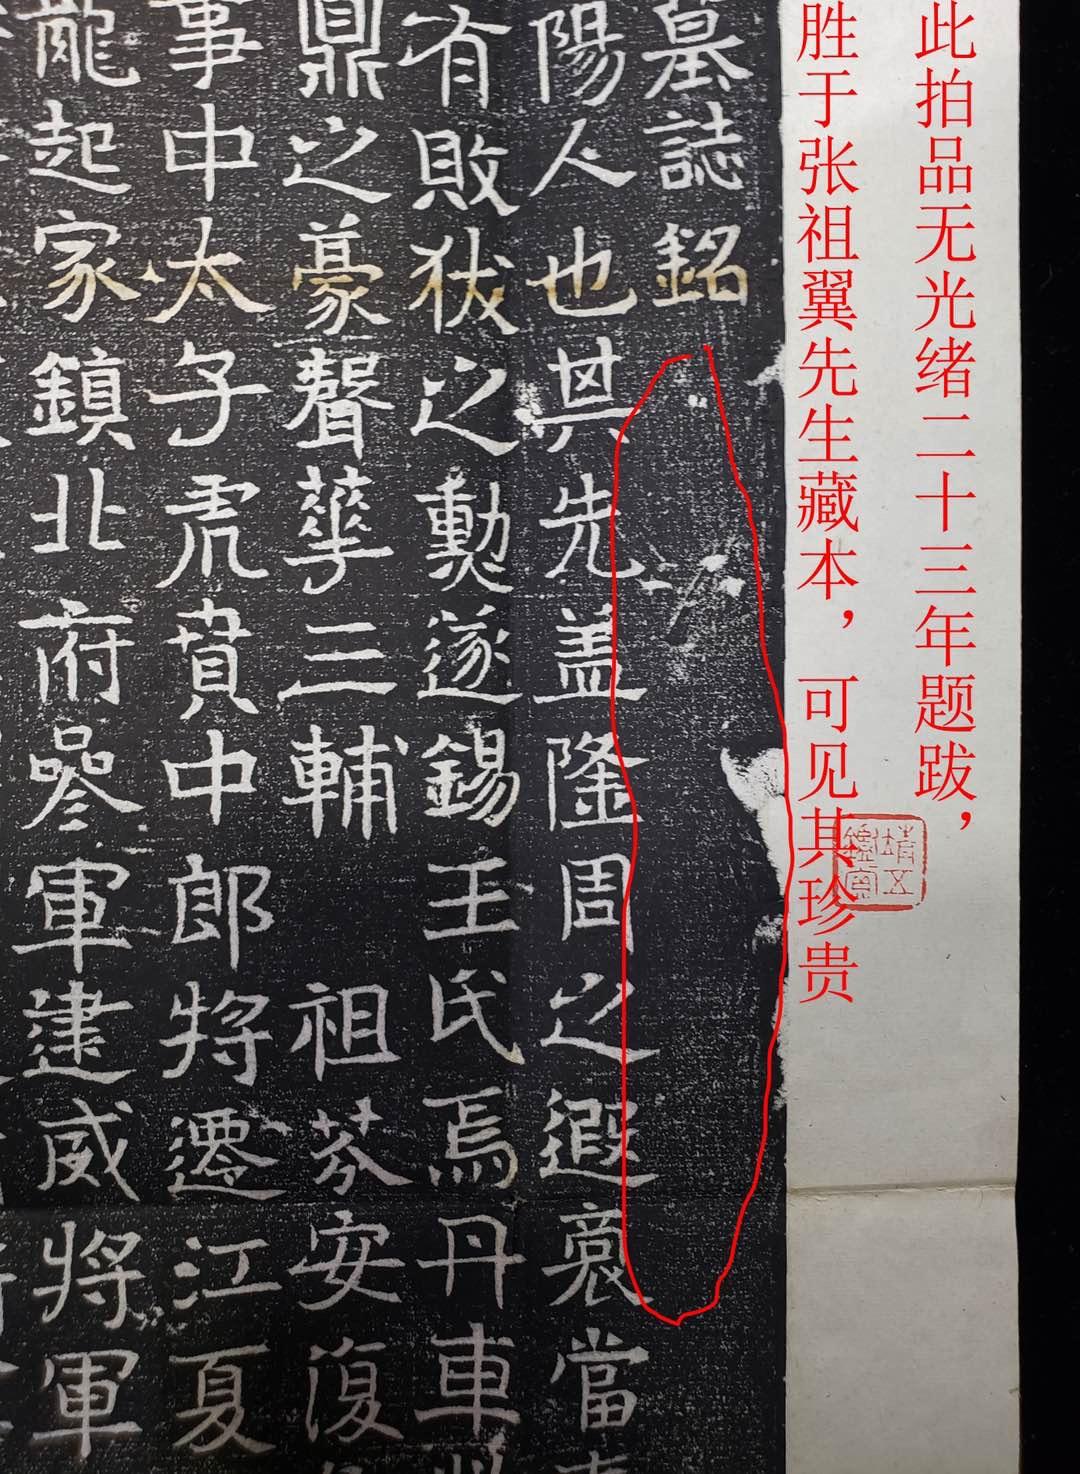 此拍品无光绪二十三年题跋，
胜于张祖翼先生藏本，可见其珍贵
靖五
墓誌銘
陽人也其先盖隆周之遐裔當
有敗狄之勳遂錫王氏焉丹車
鼎之豪聲華三輔 祖芬安復
事中太子虎賁中郎將遷江夏
龍起家鎮北府參軍建威將軍